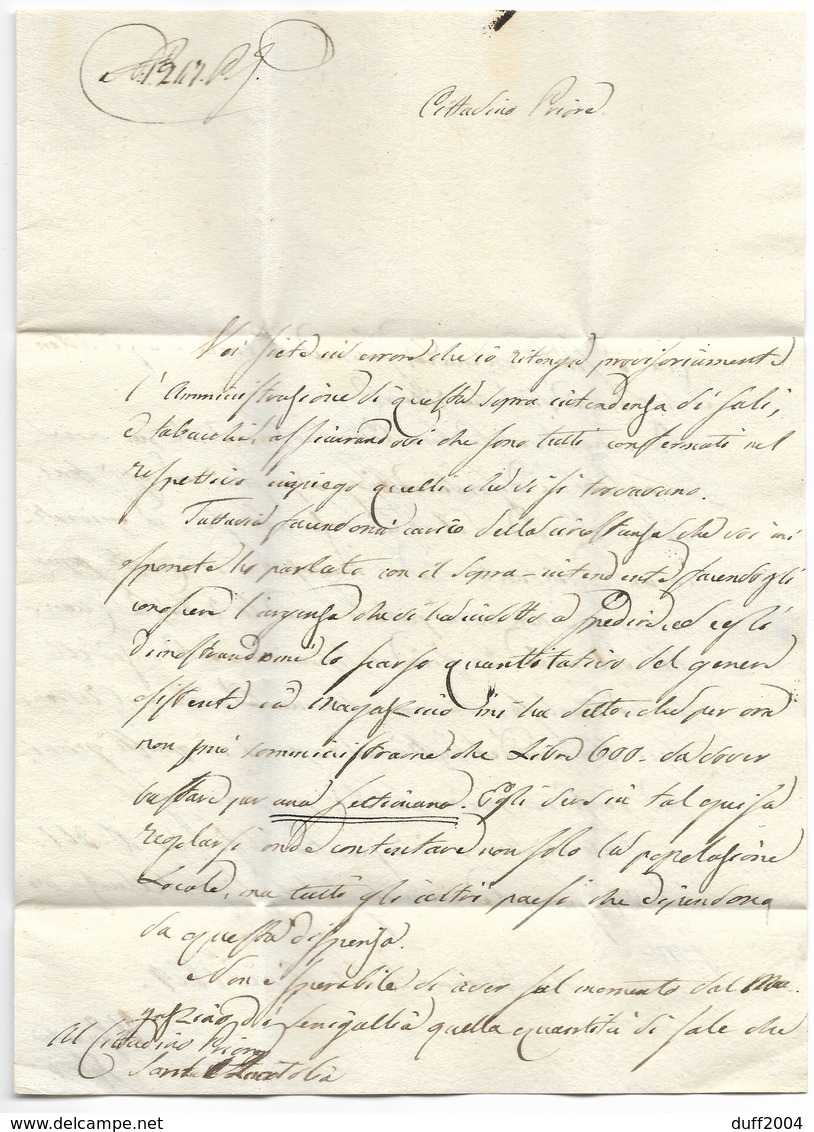 N. 1247. P. J.
Cittadino Priore
Voi siete in errore che io ritenga provisoriamente
l'Amministrazione di questa sopra intendenza di sali,
e tabacchi, assicurandovi che sono tutti confermati nel
respettivo impiego quelli che vi si trovavano.
Tuttavia facendomi carico della circostanza che voi mi
esponete ho parlato con il sopra-intendente facendogli
conoscere l'urgenza che vi ha indotto a spedire, ed egli
dimostrandomi lo scarso quantitativo del genere
esistente in Magazzino mi ha detto, che per ora
non può somministrarne che Libre 600. da dover
bastare per una settimana. Egli deve in tal guisa
regolarsi onde contentare non solo la popolazione
Locale, ma tutti gli altri paesi che dipendono
da questa dispensa.
Non è sperabile di aver sul momento dal Ma-
gazzino di Senigallia quella quantità di sale che
Al Cittadino Priore
Santa
delcampe.net
duff2004